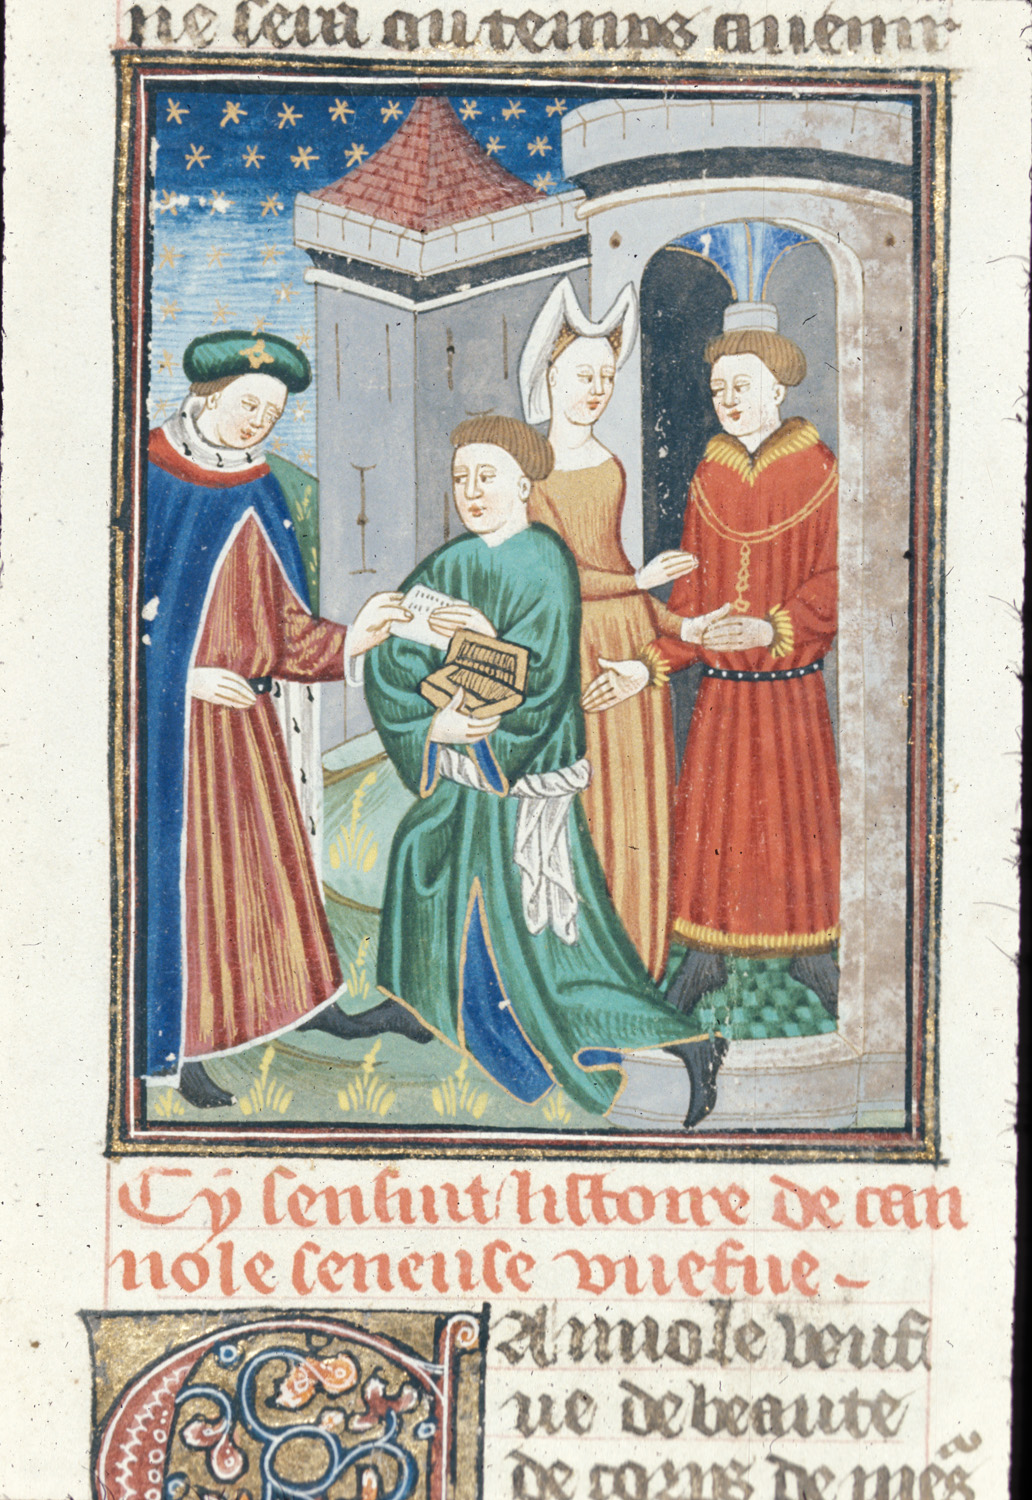 ne sera au temps auenir
Cÿ sensuit listoire de cam
nole seneuse vuefue
Amiole veuf
ue de beaute
de corps de mes